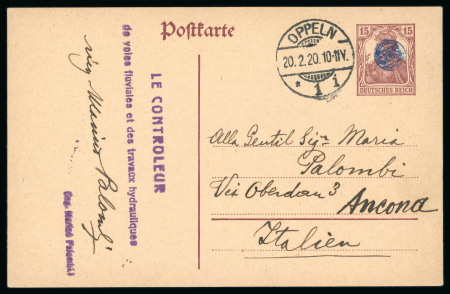 Postkarte
OPPELN
20.2.20.10-11V.
* 1 i
15 15
DEUTSCHES REICH
LE CONTROLEUR
de voies fluviales et des travaux hydrauliques
ing Marino Palombi
(Ing. Marino Palombi)
Alla Gentil Sigra Maria
Palombi
Via Oberdan 3
Ancona
Italien